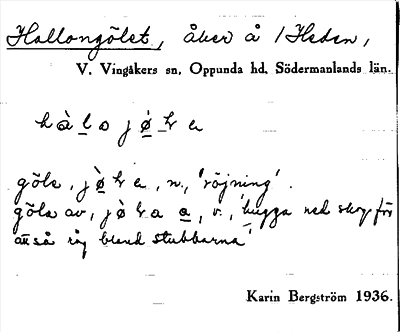 Hallongölet, åker å /Heden,
V. Vingåkers sn, Oppunda hd, Södermanlands län.
göle, n., 'röjning'.
göla av, v., 'hugga ned skog för
att så råg bland stubbarna'
Karin Bergström 1936.